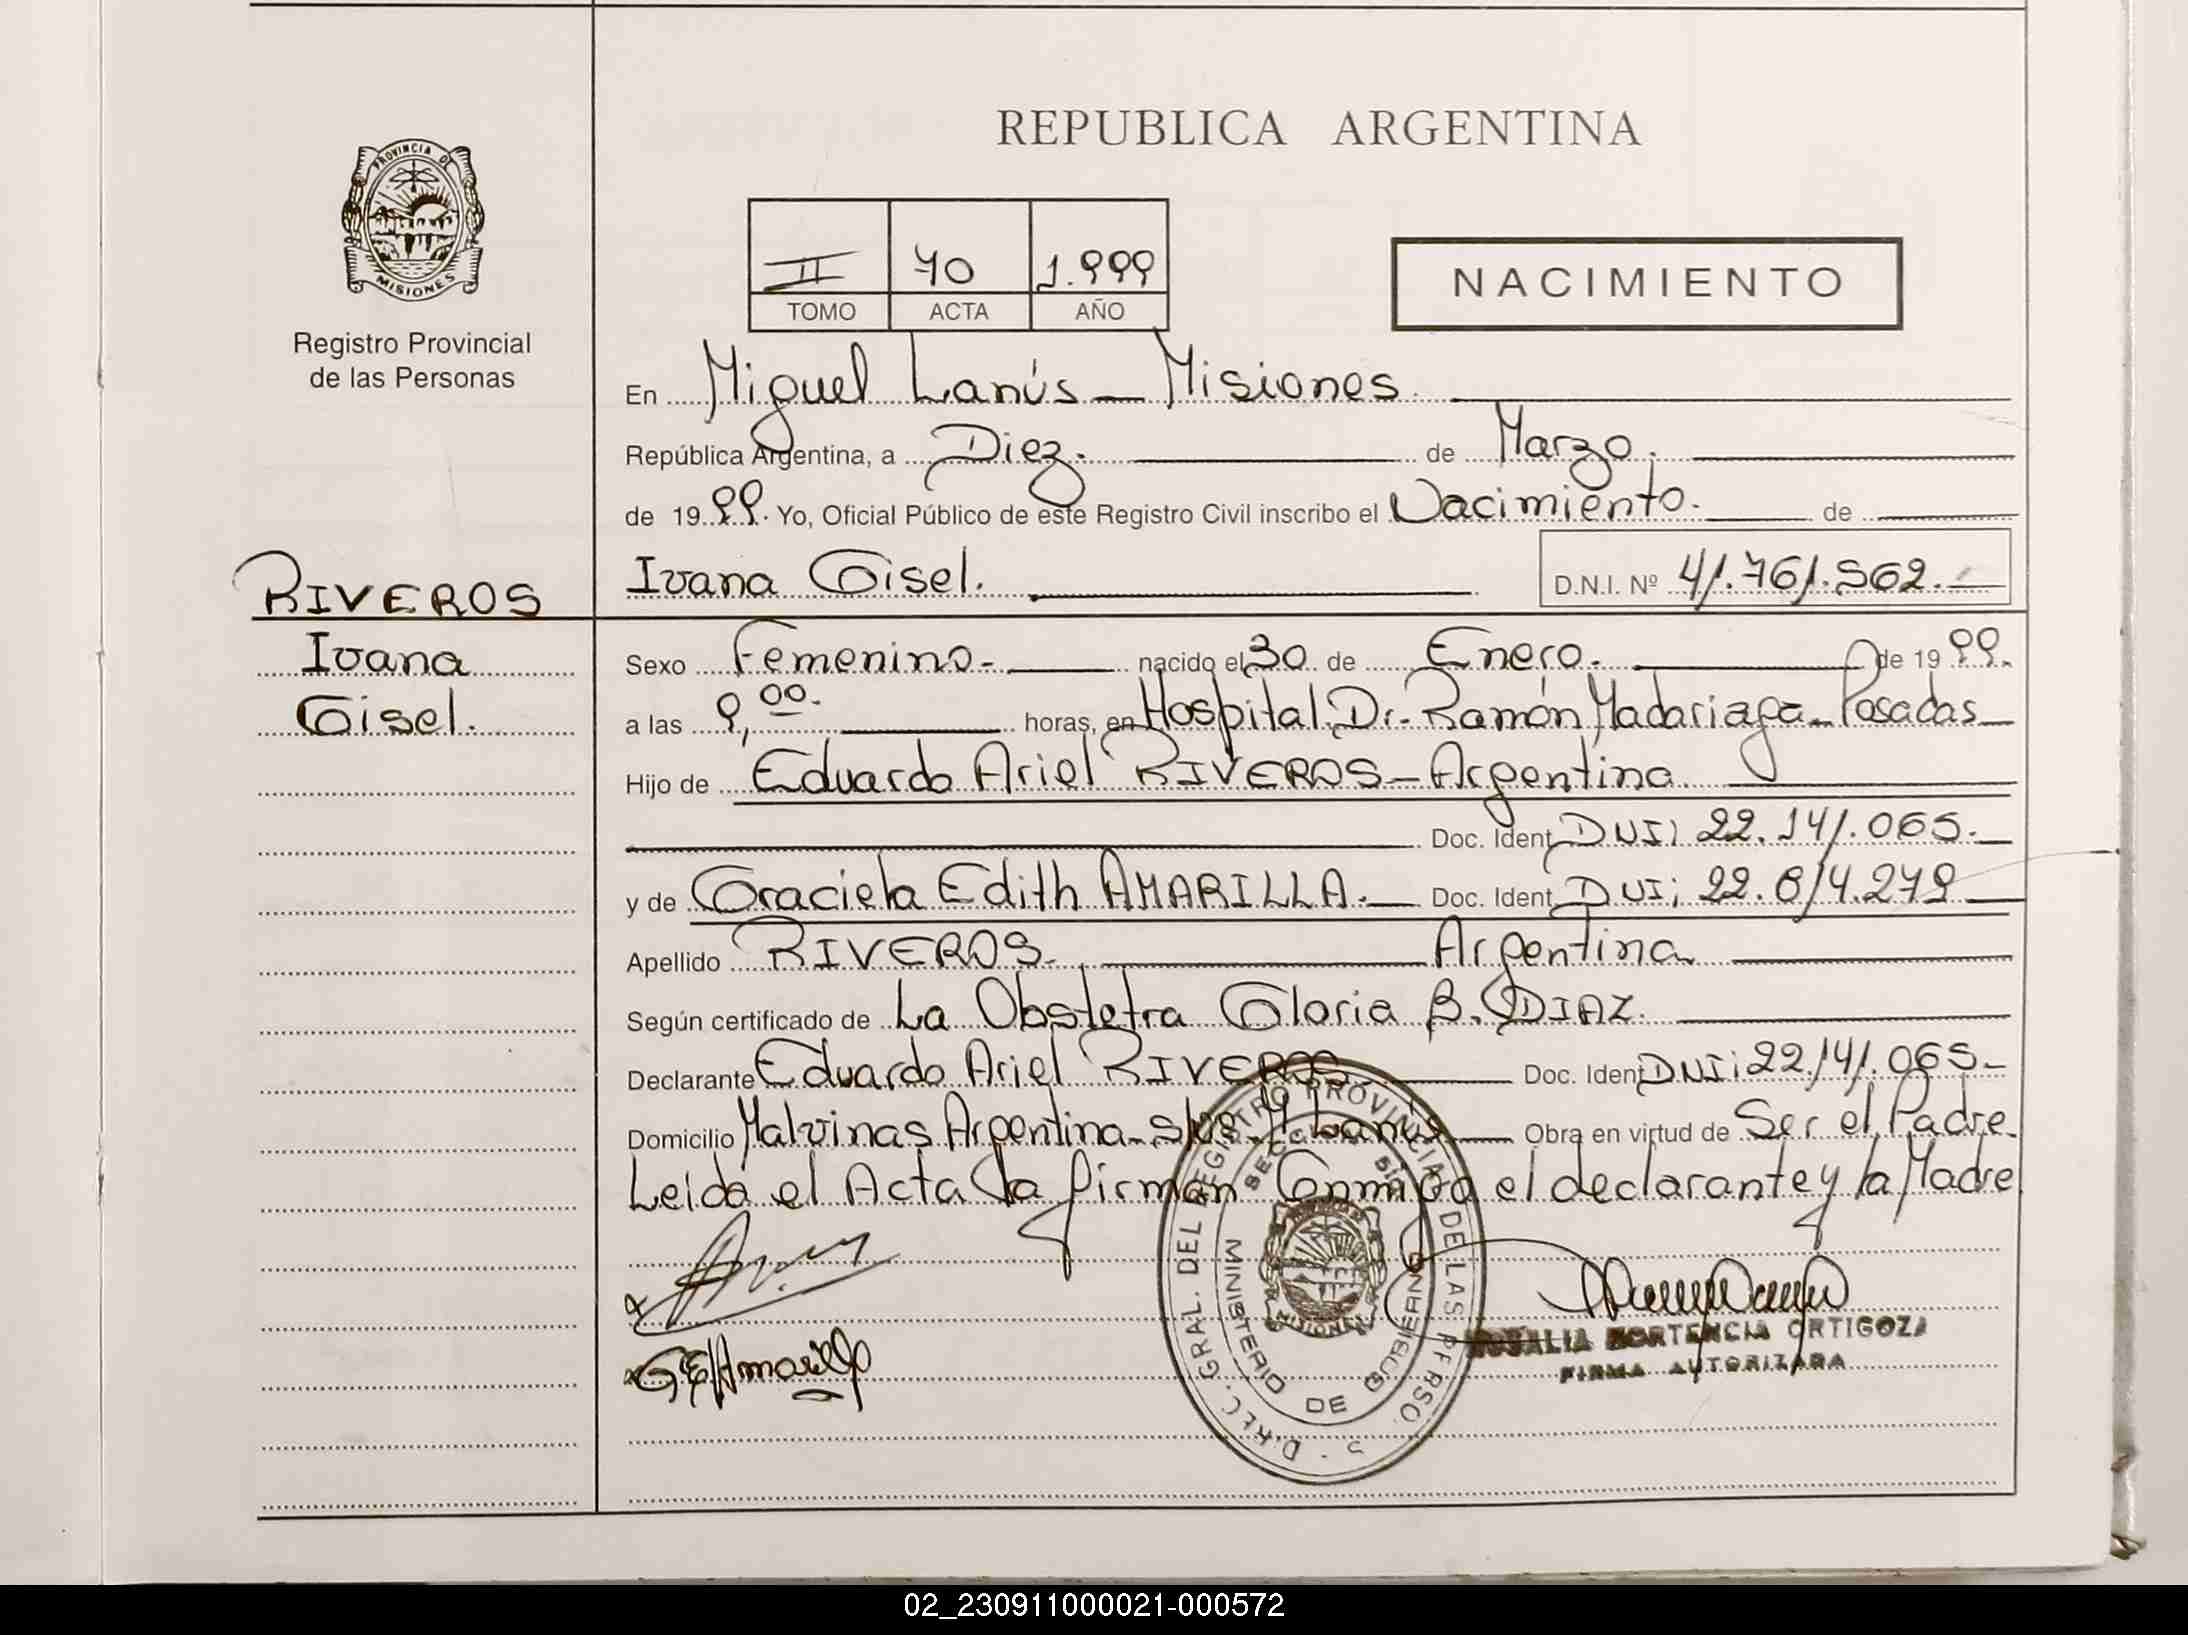 REPUBLICA ARGENTINA
PROVINCIA DE
MISIONES
Registro Provincial
de las Personas
II 70 1.999
TOMO ACTA AÑO
NACIMIENTO
En Miguel Lanús - Misiones.
República Argentina, a Diez. de Marzo.
de 1999. Yo, Oficial Público de este Registro Civil inscribo el Nacimiento. de
RIVEROS
Ivana Gisel.
Ivana Gisel. D.N.I. Nº 41.761.562.
Sexo Femenino- nacido el 30 de Enero. de 1999.
a las 9,00. horas, en Hospital Dr. Ramón Madariaga - Posadas
Hijo de Eduardo Ariel RIVEROS - Argentina
Doc. Ident. DNI; 22.141.065.
y de Graciela Edith AMARILLA. Doc. Ident. DNI; 22.814.279
Apellido RIVEROS. Argentina
Según certificado de La Obstetra Gloria B. DIAZ.
Declarante Eduardo Ariel RIVEROS. Doc. Ident. DNI; 22.141.065.-
Domicilio Malvinas Argentina - s/Nº - M Lanús Obra en virtud de Ser el Padre.
Leida el Acta la firman Conmigo el declarante y la Madre
G E Amarilla
ROSALIA HORTENCIA ORTIGOZA
FIRMA AUTORIZADA
DIREC. GRAL. DEL REGISTRO PROVINCIAL DE LAS PERSO. S
MINISTERIO DE GOBIERNO
MISIONES
02_230911000021-000572